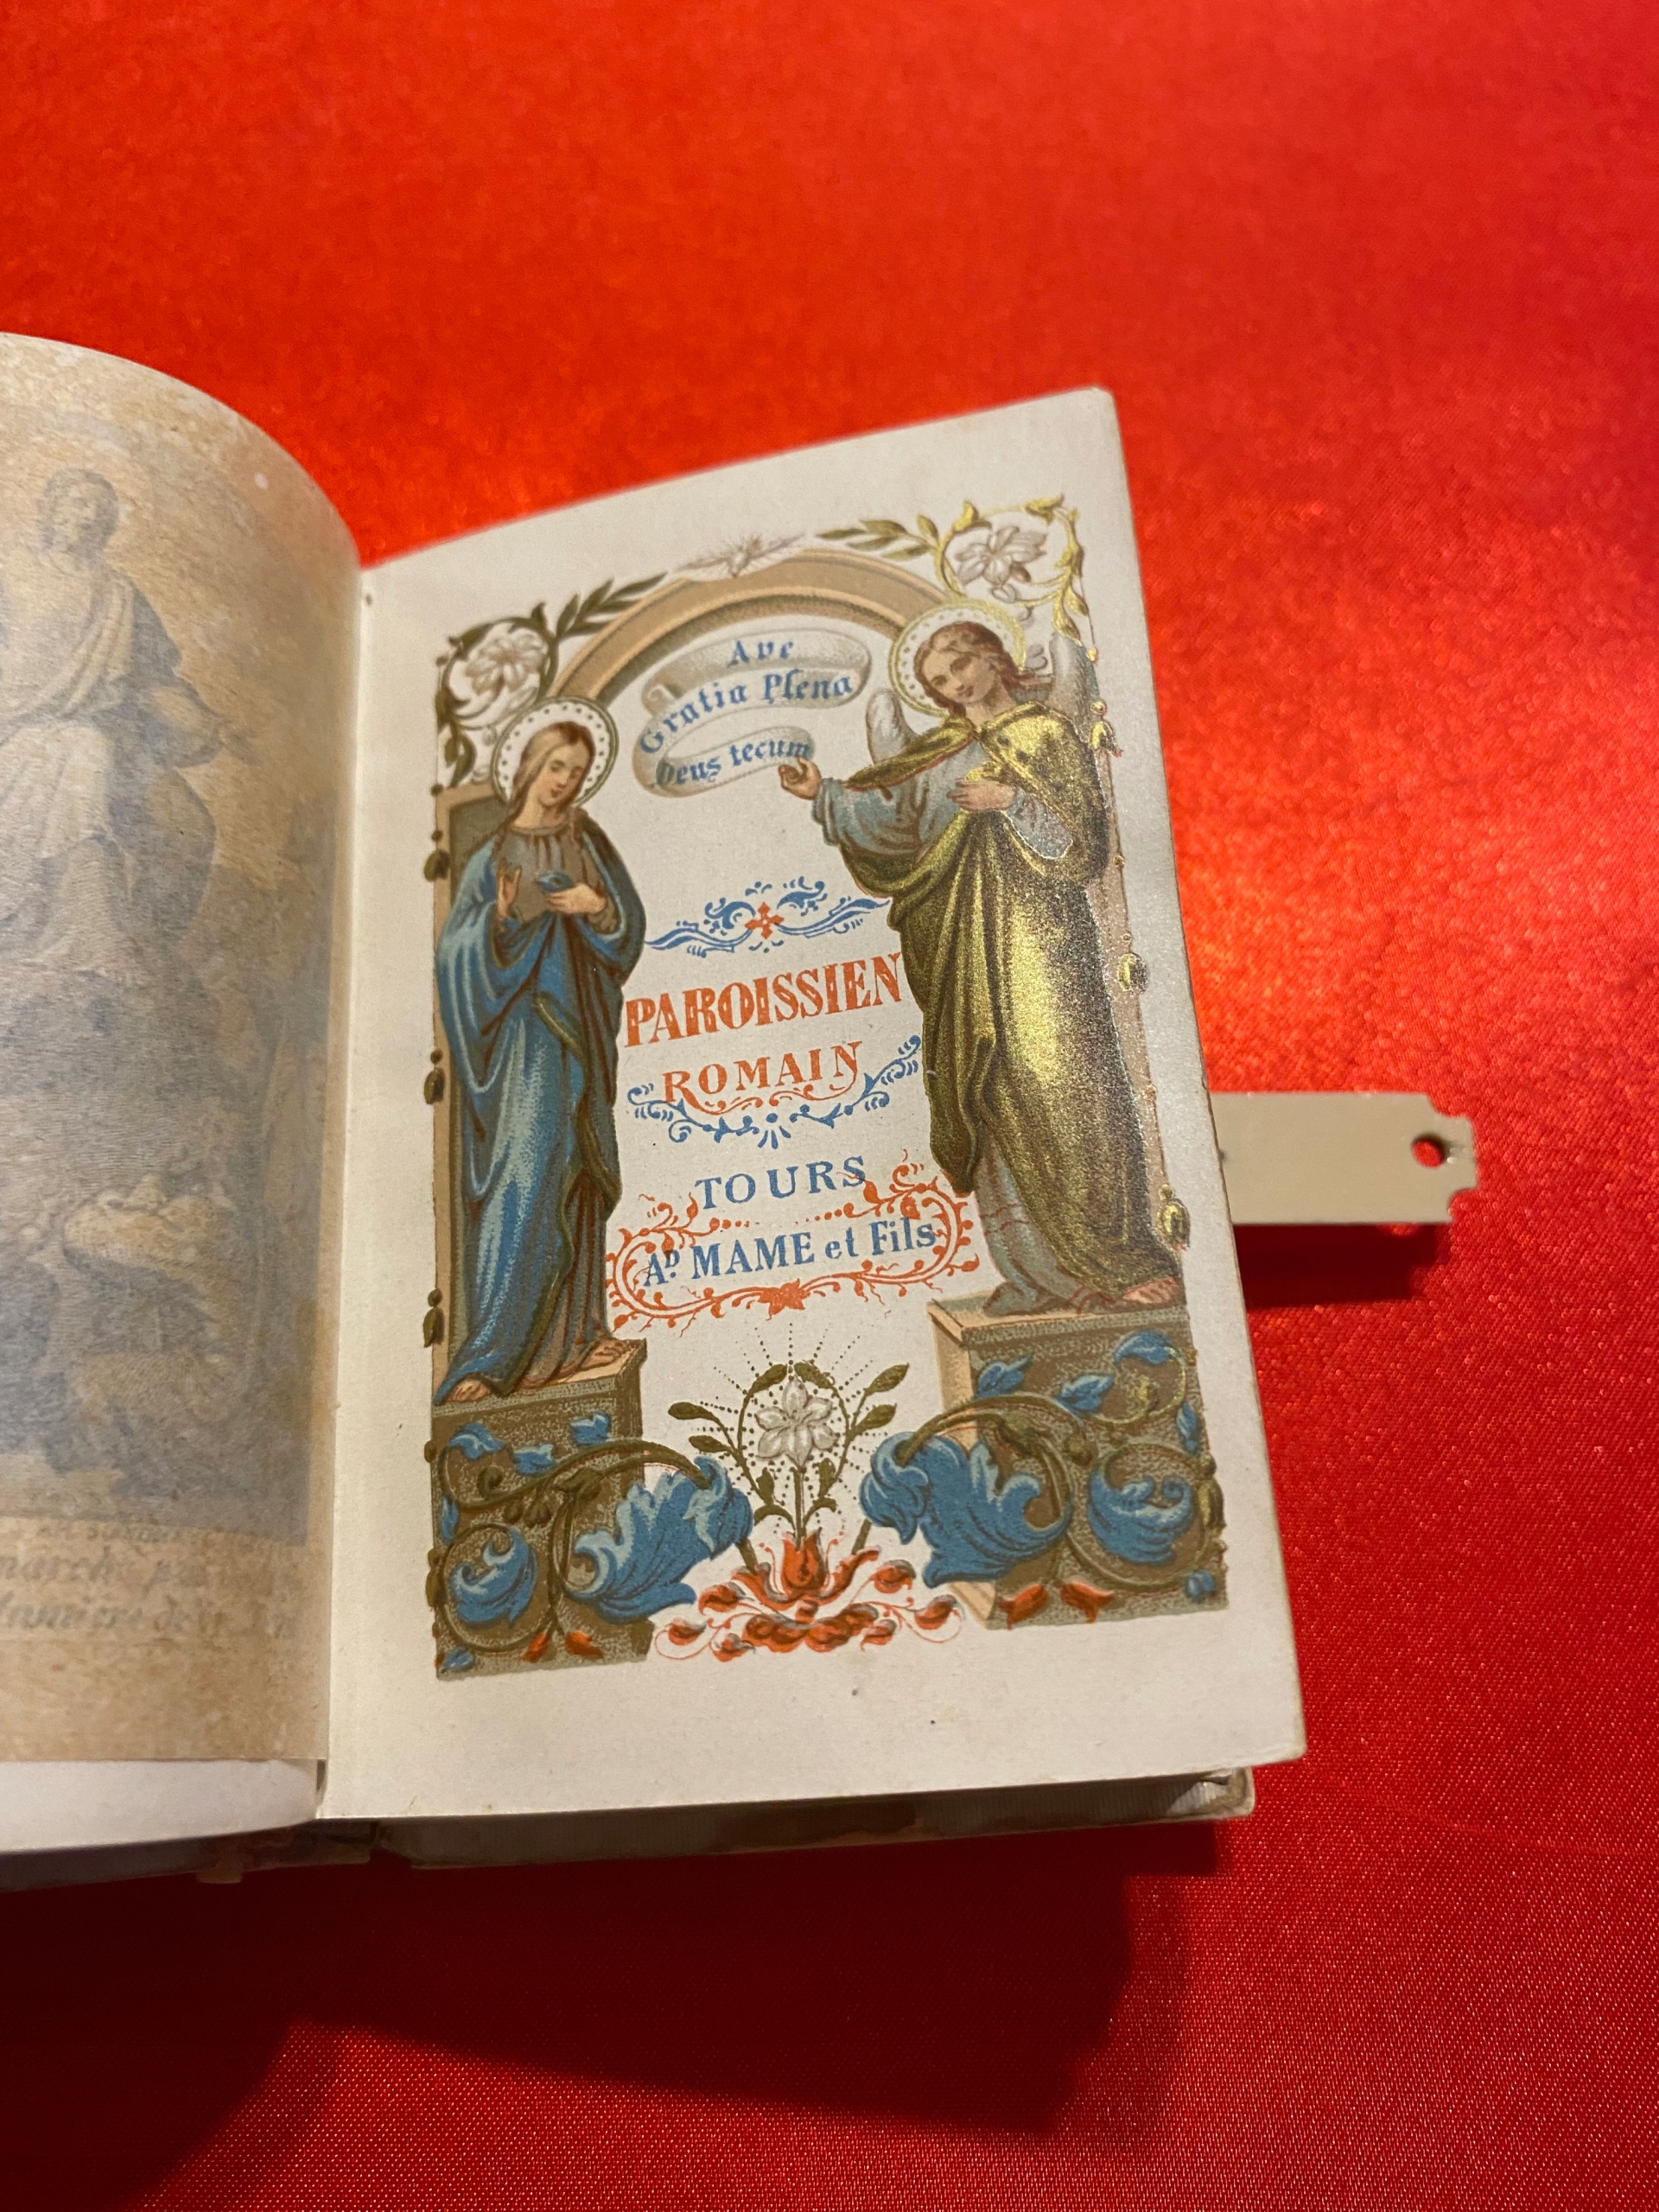 Ave
Gratia Plena
Deus tecum
PAROISSIEN
ROMAIN
TOURS
AD. MAME et Fils